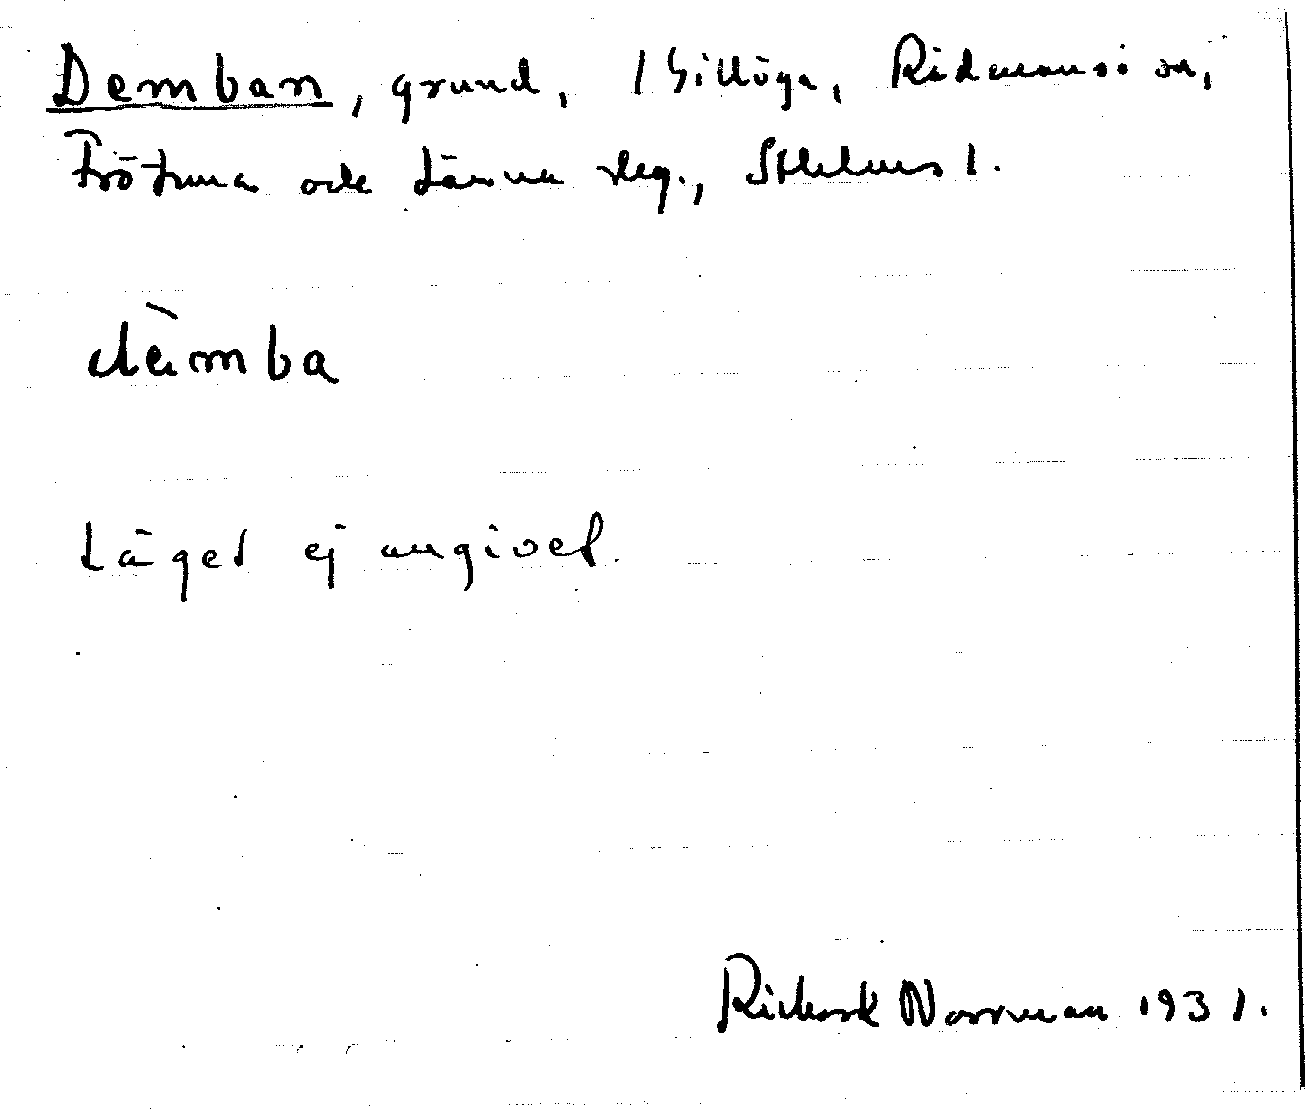 Demban, grund, i Gillöga, Rådmansö sn,
Frötuna och Länna slg., Sthlms l.
dämba
Läget ej angivet.
Rickard Norrman 1931.